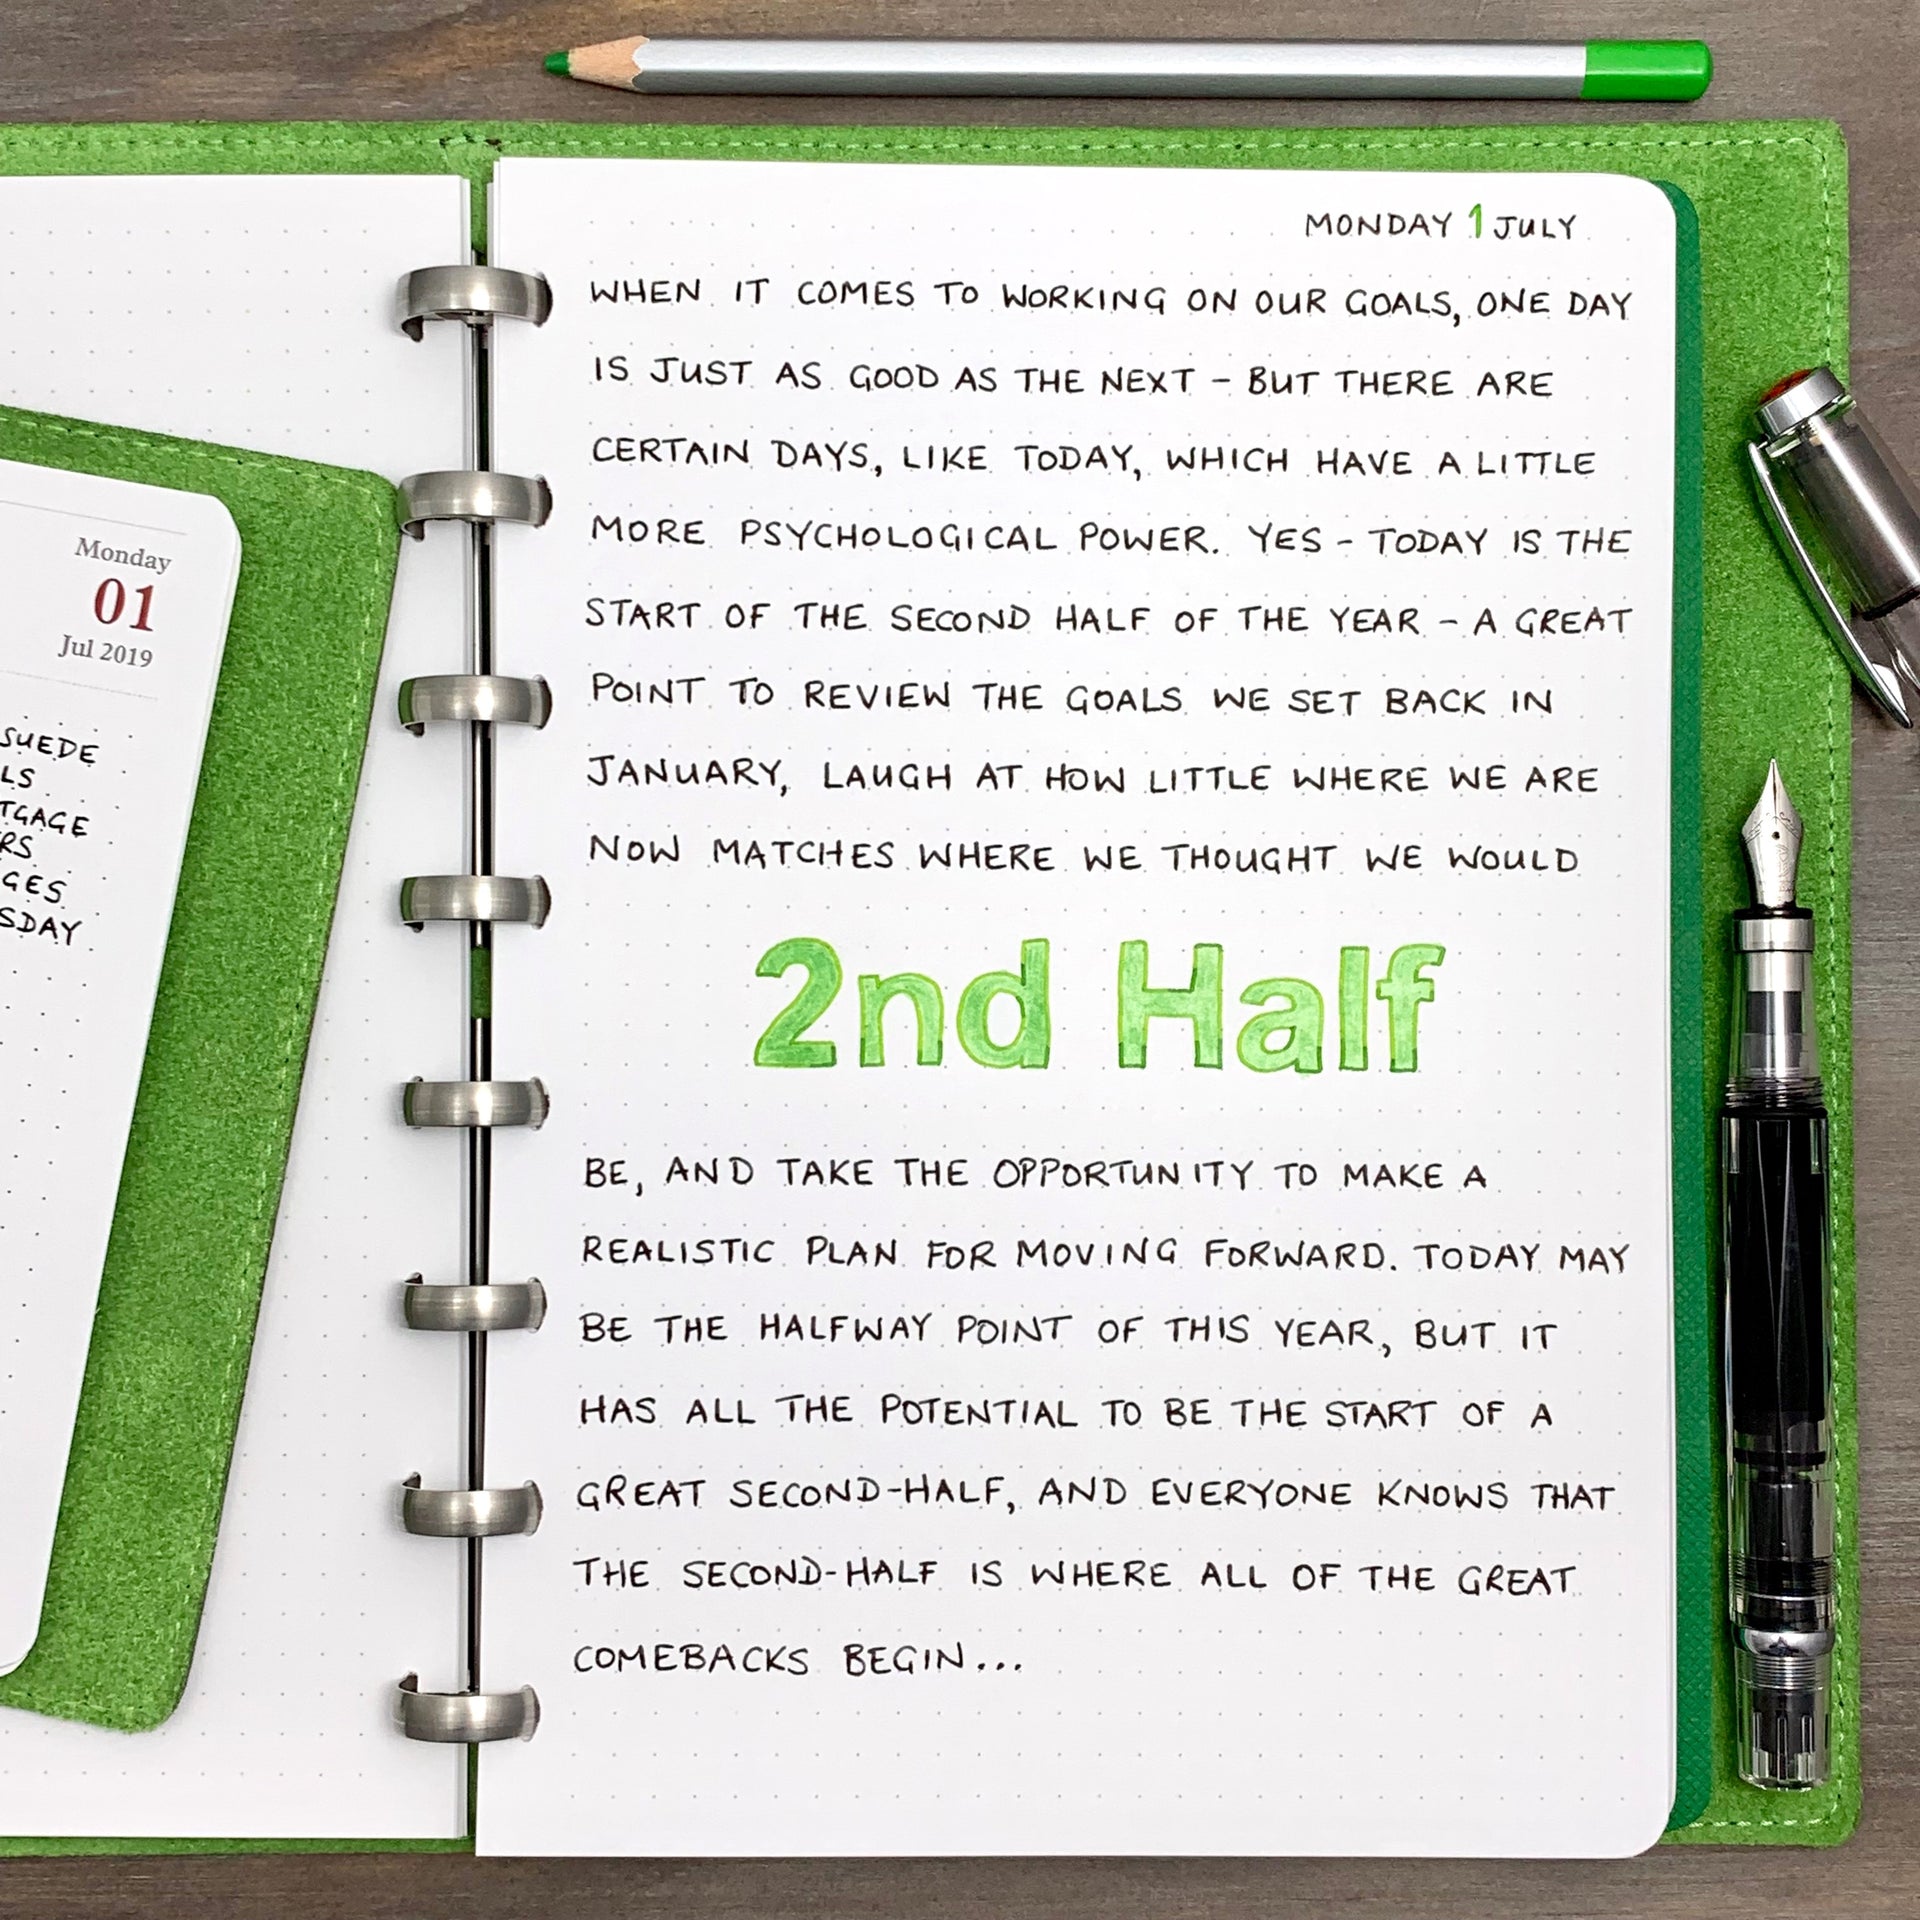 Monday
01
Jul 2019
SUEDE
LS
TGAGE
RS
GES
SDAY
MONDAY 1 JULY
WHEN IT COMES TO WORKING ON OUR GOALS, ONE DAY
IS JUST AS GOOD AS THE NEXT - BUT THERE ARE
CERTAIN DAYS, LIKE TODAY, WHICH HAVE A LITTLE
MORE PSYCHOLOGICAL POWER. YES - TODAY IS THE
START OF THE SECOND HALF OF THE YEAR - A GREAT
POINT TO REVIEW THE GOALS WE SET BACK IN
JANUARY, LAUGH AT HOW LITTLE WHERE WE ARE
NOW MATCHES WHERE WE THOUGHT WE WOULD
2nd Half
BE, AND TAKE THE OPPORTUNITY TO MAKE A
REALISTIC PLAN FOR MOVING FORWARD. TODAY MAY
BE THE HALFWAY POINT OF THIS YEAR, BUT IT
HAS ALL THE POTENTIAL TO BE THE START OF A
GREAT SECOND-HALF, AND EVERYONE KNOWS THAT
THE SECOND-HALF IS WHERE ALL OF THE GREAT
COMEBACKS BEGIN...